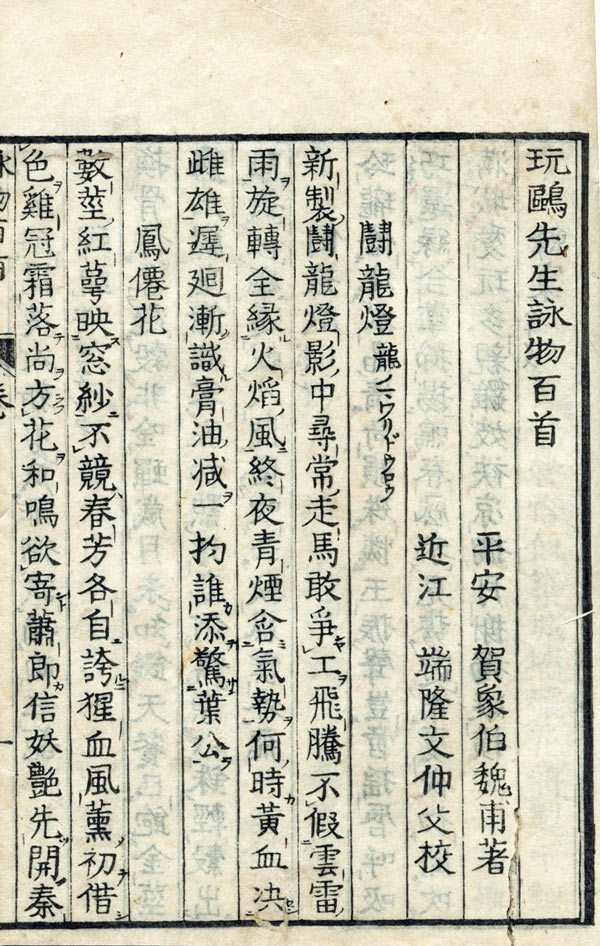 玩鷗先生詠物百首
平安 賀象伯魏甫著
近江 端隆文仲父校
鬪龍燈
新製鬪龍燈影中尋常走馬敢爭工飛騰不假雲雷
雨旋轉全縁火焰風終夜青煙含氣勢何時黃血决
雌雄遲廻漸識膏油减一抅誰添驚葉公
鳳僊花
數莖紅萼映窓紗不競春芳各自誇猩血風薰初借
色雞冠霜落尚方花和鳴欲寄蕭郎信妖艷先開秦